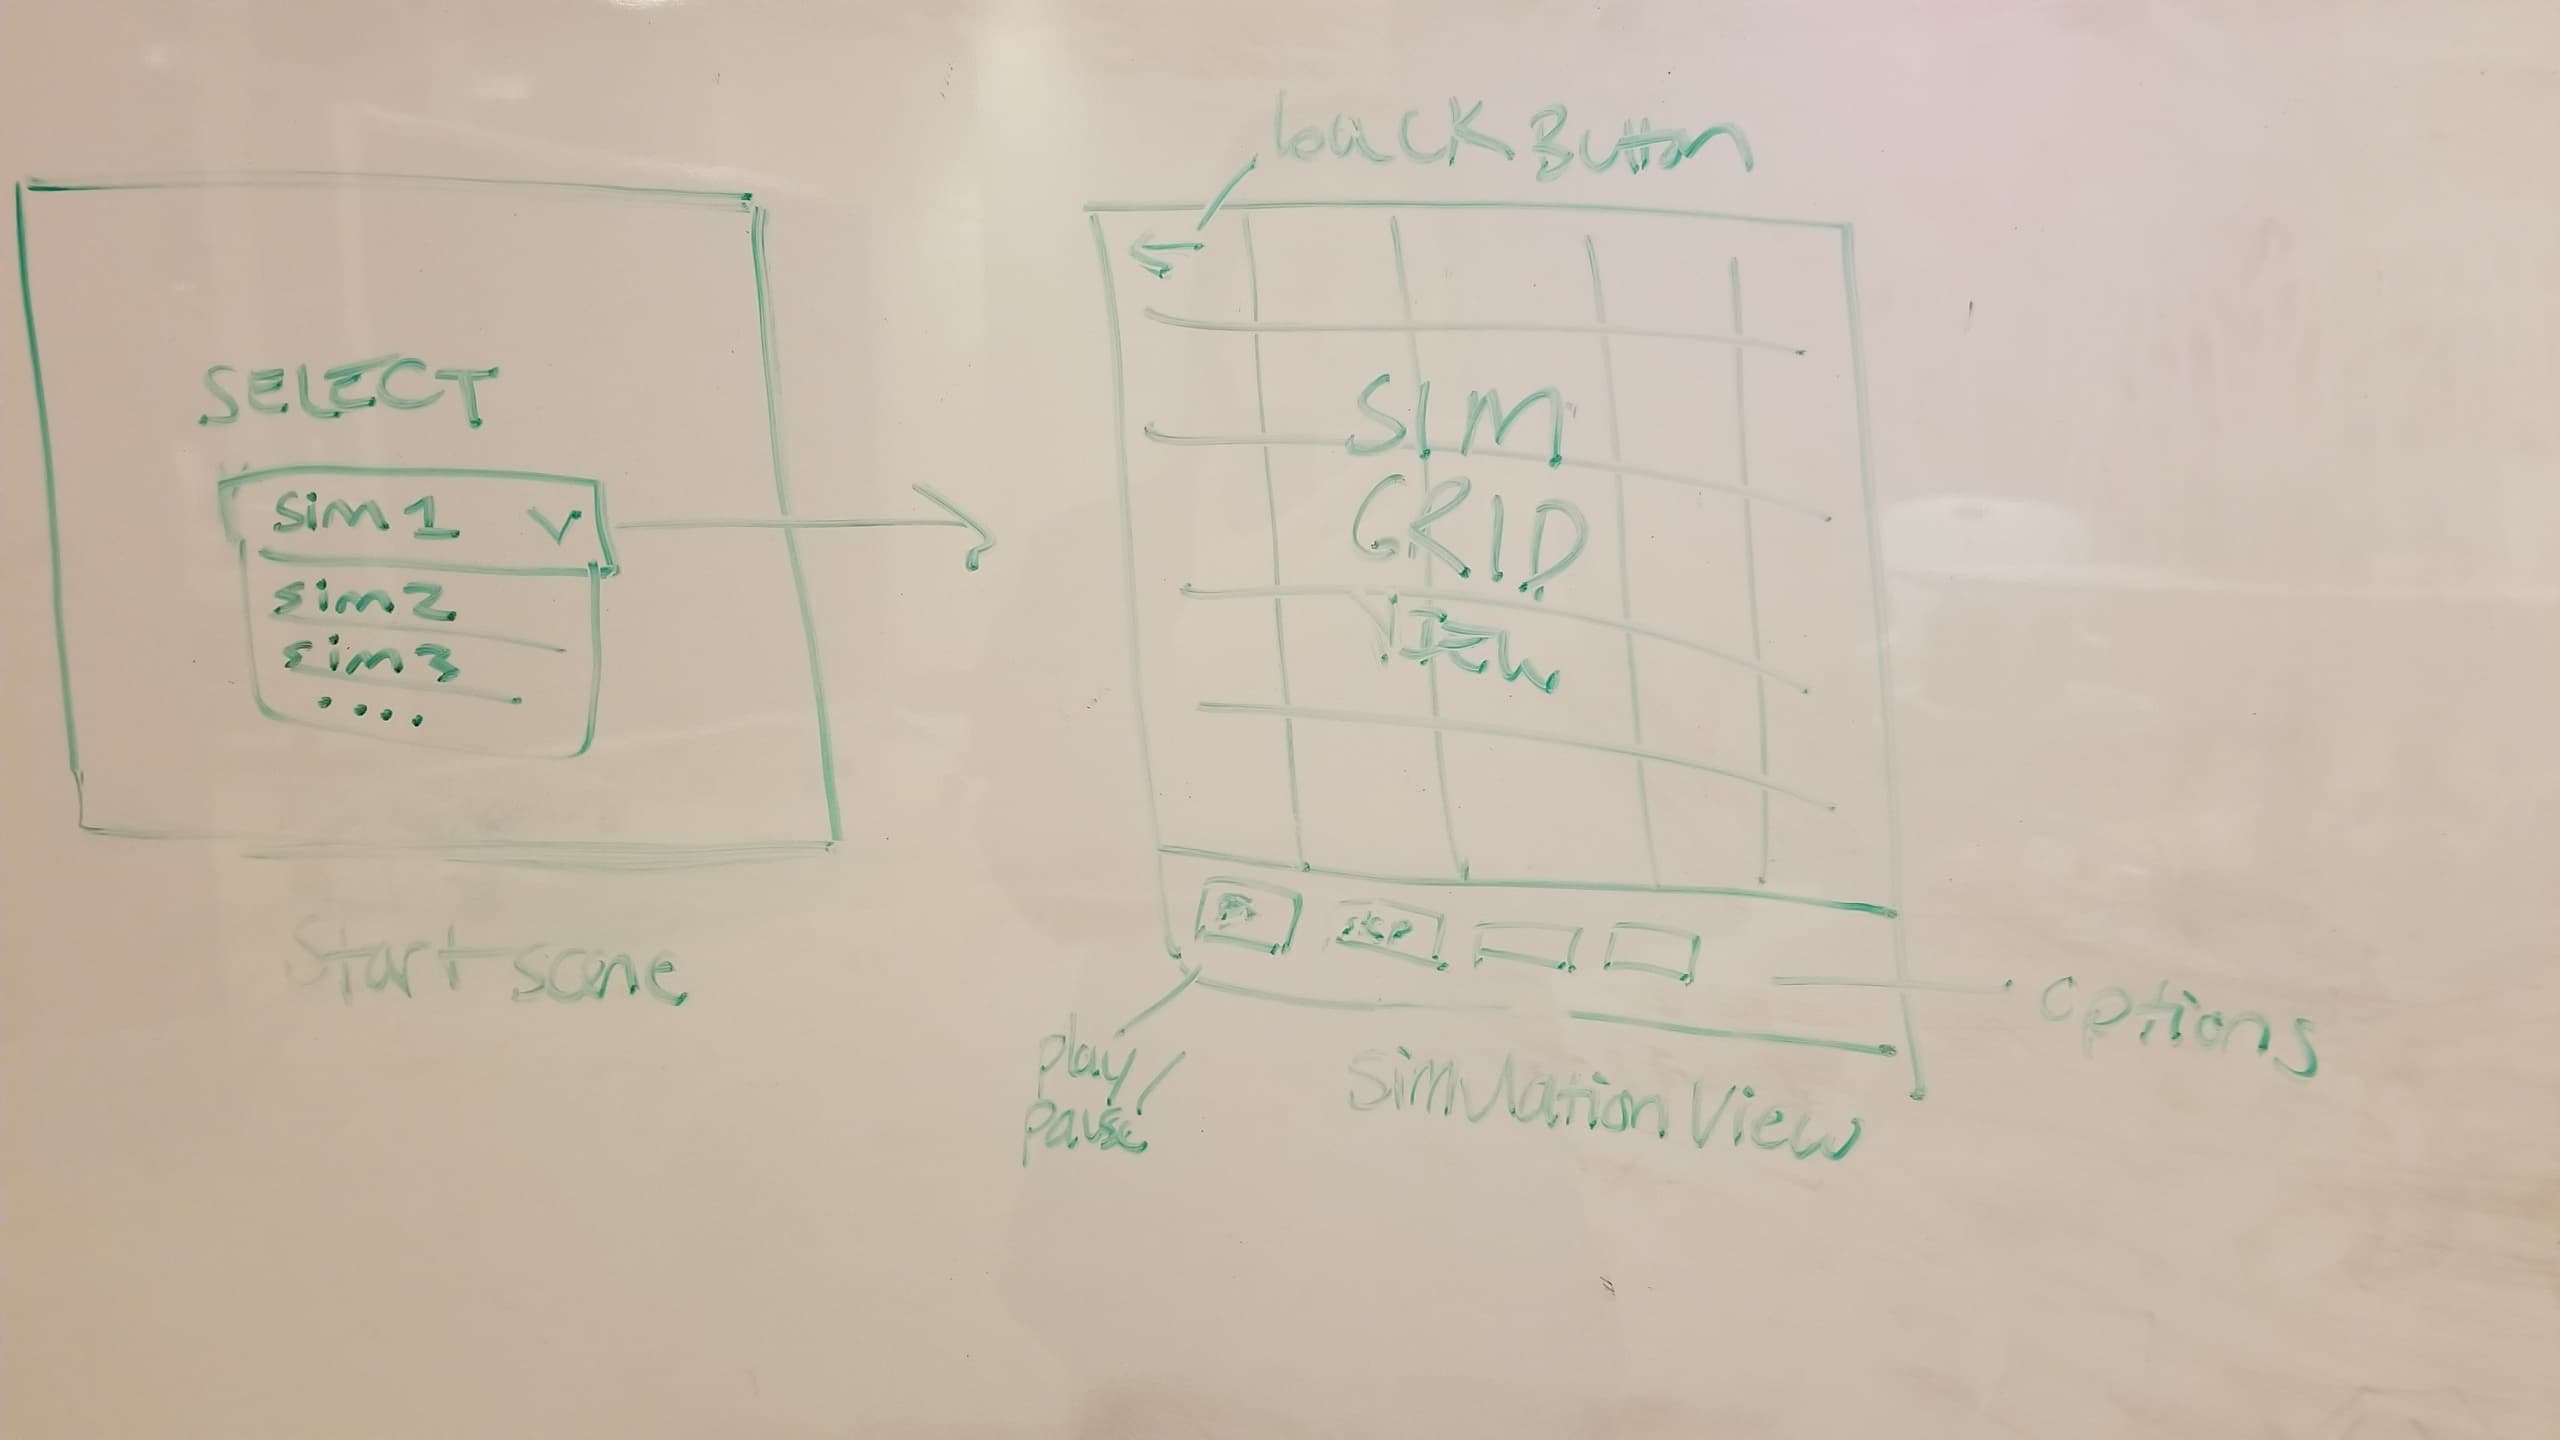 SELECT
sim 1
sim 2
sim 3
....
Start scene
back Button
SIM
GRID
VIEW
play/
pause
options
Simulation View